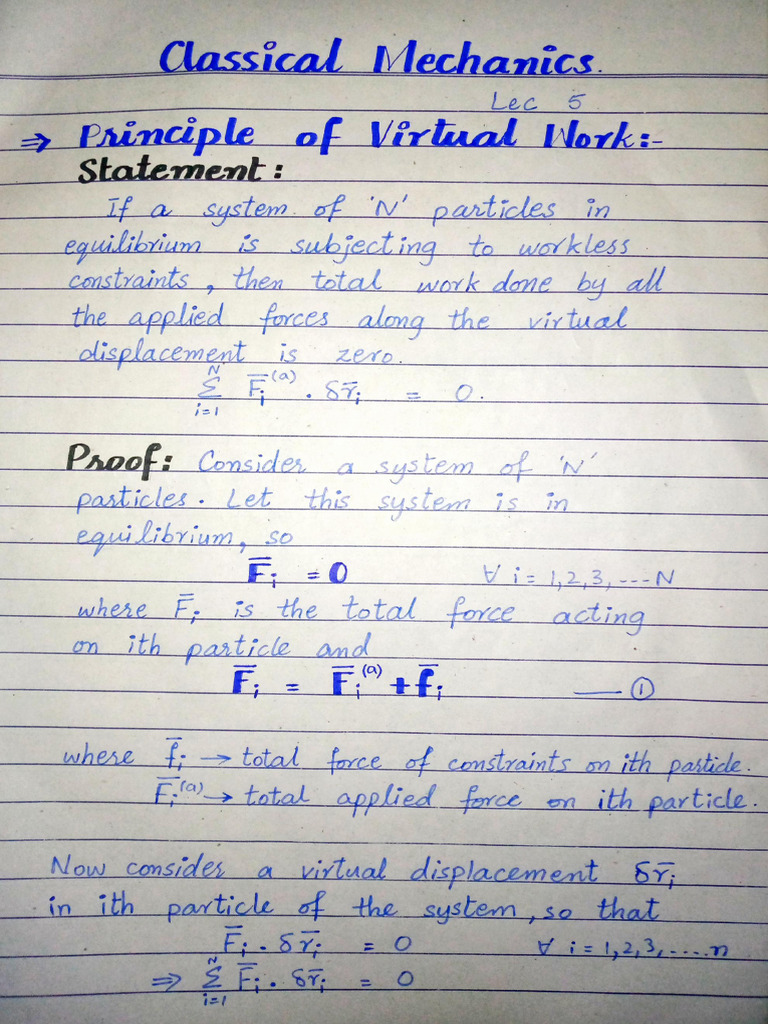 Classical Mechanics.
Lec 5
⇒ Principle of Virtual Work:-
Statement:
If a system of 'N' particles in
equilibrium is subjecting to workless
constraints, then total work done by all
the applied forces along the virtual
displacement is zero.
N
Σ F̄ᵢ⁽ᵃ⁾ . δr̄ᵢ = 0.
i=1
Proof: Consider a system of 'N'
particles. Let this system is in
equilibrium, so
F̄ᵢ = 0 ∀ i = 1,2,3, ---- N
where F̄ᵢ is the total force acting
on ith particle and
F̄ᵢ = F̄ᵢ⁽ᵃ⁾ + f̄ᵢ —— ①
where f̄ᵢ → total force of constraints on ith particle.
F̄ᵢ⁽ᵃ⁾ → total applied force on ith particle.
Now consider a virtual displacement δr̄ᵢ
in ith particle of the system, so that
F̄ᵢ . δr̄ᵢ = 0 ∀ i = 1,2,3, .....n
N
⇒ Σ F̄ᵢ . δr̄ᵢ = 0
i=1